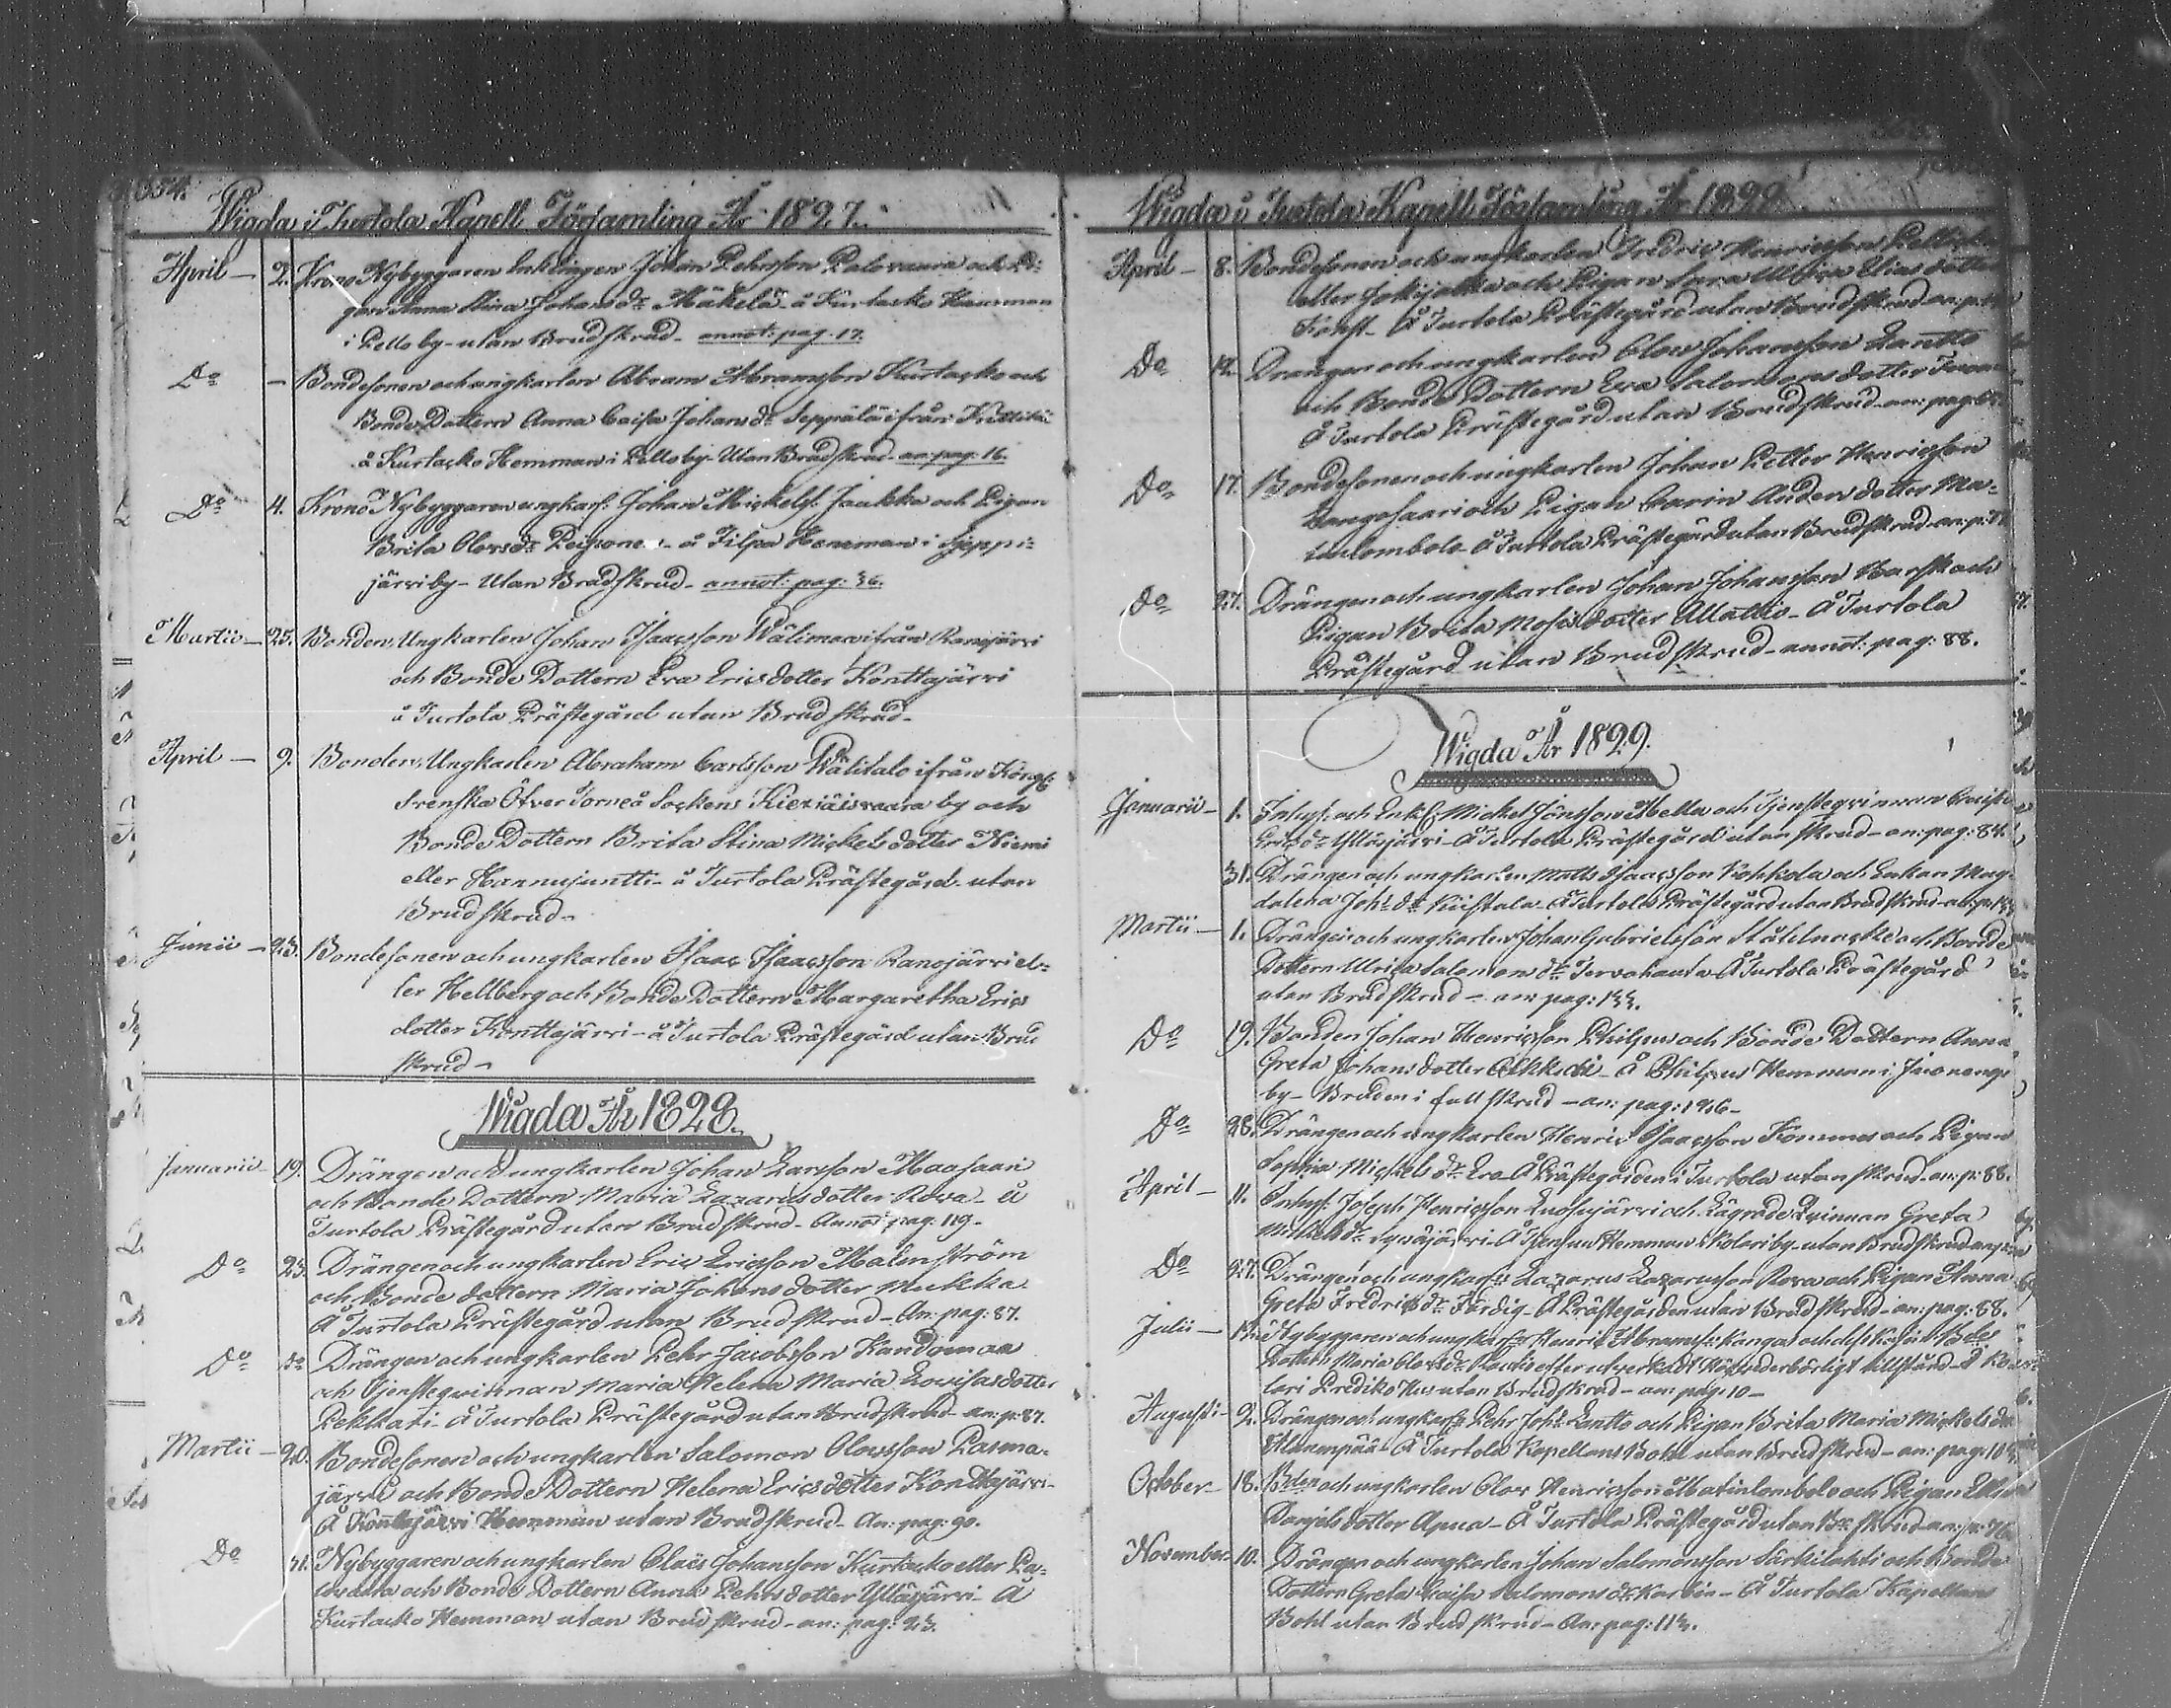 354.
Wigda i Turtola Kapell Församling År 1827.
April — 2. Krono Nybyggaren Enklingen Johan Pehrsson Palovaara och Pi-
gan Anna Stina Johans dr Mäkelä å Kurtacko Hemman
i Pello by - utan Brudskrud - annot: pag. 17.
Do — Bondesonen och ungkarlen Abram Abramsson Kurtacko och
Bonde Dottern Anna Caisa Johans dr Seppälä ifrån
å Kurtacko Hemman i Pello by - Utan Brudskrud - an: pag. 16.
Do 4. Krono Nybyggaren ungkarl: Johan Mickels: Jaukka och Pigan
Brita Olovs dr - å Filpa Hemman i Sieppi-
järvi by - Utan Brudskrud - annot: pag: 36.
Martii — 25. Bonden, Ungkarlen Johan Isaacsson Wälimaa ifrån Ranojärvi
och Bonde Dottern Eva Ericsdotter Konttajärvi
å Turtola Prästegård utan Brudskrud -
April — 9. Bonden, Ungkarlen Abraham Carlsson Wälitalo ifrån Kongl:
Svenska Öfver Torneå Sockens Kiexiäisvaara by och
Bonde Dottern Brita Stina Mickelsdotter Niemi
eller Hannujuntti - å Turtola Prästegård utan
Brudskrud -
Junii — 23. Bondesonen och ungkarlen Isaac Isaacsson Ranojärvi el-
ler Hellberg och Bonde Dottern Margaretha Erics
dotter Konttajärvi - å Turtola Prästegård utan Brud
skrud -
Wigda År 1828.
Januarii — 19. Drängen och ungkarlen Johan Larsson Maasaari
och Bonde Dottern Maria Lazarusdotter Rova - å
Turtola Prästegård utan Brudskrud - Annot: pag: 119 -
Do 23. Drängen och ungkarlen Eric Ericsson Malmström
och Bonde dottern Maria Johansdotter Mukka
Å Turtola Prästegård utan Brudskrud - An: pag: 87.
Do Do Drängen och ungkarlen Pehr Jacobsson Kandomaa
och Tjensteqvinnan Maria Helena Maria Lovisasdotter
Pekkati - Å Turtola Prästegård utan Brudskrud - an: p: 87.
Martii — 20. Bondesonen och ungkarlen Salomon Olovsson Pasma-
järvi och Bonde Dottern Helena Ericsdotter Konttajärvi -
Å Konttajärvi Hemman utan Brudskrud - An: pag: 90.
Do 21. Nybyggaren och ungkarlen Olaus Johansson Kurtacko eller Pa-
lovaara och Bonde Dottern Anna Pehrsdotter Ylläsjärvi - Å
Kurtacko Hemman utan Brudskrud - an: pag: 23.
Wigda i Turtola Kapell Församling År 1828
April — 8. Bondesonen och ungkarlen Fredric Henricsson
eller Jokijalka och Pigan Sara Ulrica Eliasdotter
Å Turtola Prästegård utan Brudskrud - an: p:
Do 12. Drängen och ungkarlen Olov Johansson Lantto
och Bonde Dottern Eva Salomonsdotter
Å Turtola Prästegård utan Brudskrud - an: pag:
Do 17. Bondesonen och ungkarlen Johan Petter Henricsson
Kangosaari och Pigan Carin Andersdotter Ma-
tinlombolo - Å Turtola Prästegård utan Brudskrud - an: p:
Do 27. Drängen och ungkarlen Johan Johansson Barsk och
Pigan Brita Mosisdotter Alattio - Å Turtola
Prästegård utan Brudskrud - annot: pag: 88.
Wigda År 1829.
Januarii — 1. Inhys: och Enkl: Mickel Jönsson Mella och Tjensteqvinnan Caisa
Erics dr Ylläsjärvi - Å Turtola Prästegård utan skrud - an: pag: 84.
31. Drängen och ungkarlen Matts Isaacsson Kohkola och Enkan Mag-
dalena Joh: dr Kiistala - Å Turtola Prästegård utan Brudskrud - an: p:
Martii — 1. Drängen och ungkarlen Johan Gabrielsson Stålnacke och Bonde
Dottern Ulrica Salomons dr Tervahauta - Å Turtola Prästegård
utan Brudskrud - an: pag: 133.
Do 19. Bonden Johan Henricsson Philpus och Bonde Dottern Anna
Greta Johansdotter - Å Philpus Hemman i Juonengi
by - Bruden i full skrud - an: pag: 146 -
Do 28. Drängen och ungkarlen Henric Isaacsson Kommes och Pigan
Sophia Mickels dr Era - Å Prästegården i Turtola utan skrud - an: p: 88.
April — 11. Inhys: Joseph Henricsson Luosujärvi och Lägrade Qvinnan Greta
Mickels dr Syväjärvi - Å Jensun Hemman i Kolari by - utan Brudskrud an: p:
Do 27. Drängen och ungkarln Lazarus Lazarusson Rova och Pigan Anna
Greta Fredrics dr Färdig - Å Prästegården utan Brudskrud - an: pag: 88.
Julii — 12. Nybyggaren och ungkarln Henric Abramss: Kangas och dess Kusin Bde
Dottern Maria Olovs dr efter utverkadt Höfvederbörligt tillstånd - Å Ko-
lari Prediko Hus utan Brudskrud - an: pag: 10 -
Augusti — 2. Drängen och ungkarln Pehr Joh: Lantto och Pigan Brita Maria Mickels dr
Alanenpää - Å Turtola Kapellans Bohl utan Brudskrud - an: pag: 104.
October — 18. Bden och ungkarlen Olov Henricsson Matinlombolo och Pigan
Danielsdotter Apua - Å Turtola Prästegård utan Br: skrud - an: p: 76
November — 10. Drängen och ungkarlen Johan Salomonsson Särkilahti och Bonde
Dottern Greta Caisa Salomons dr - Å Turtola Kapellans
Bohl utan Brudskrud - An: pag: 113.